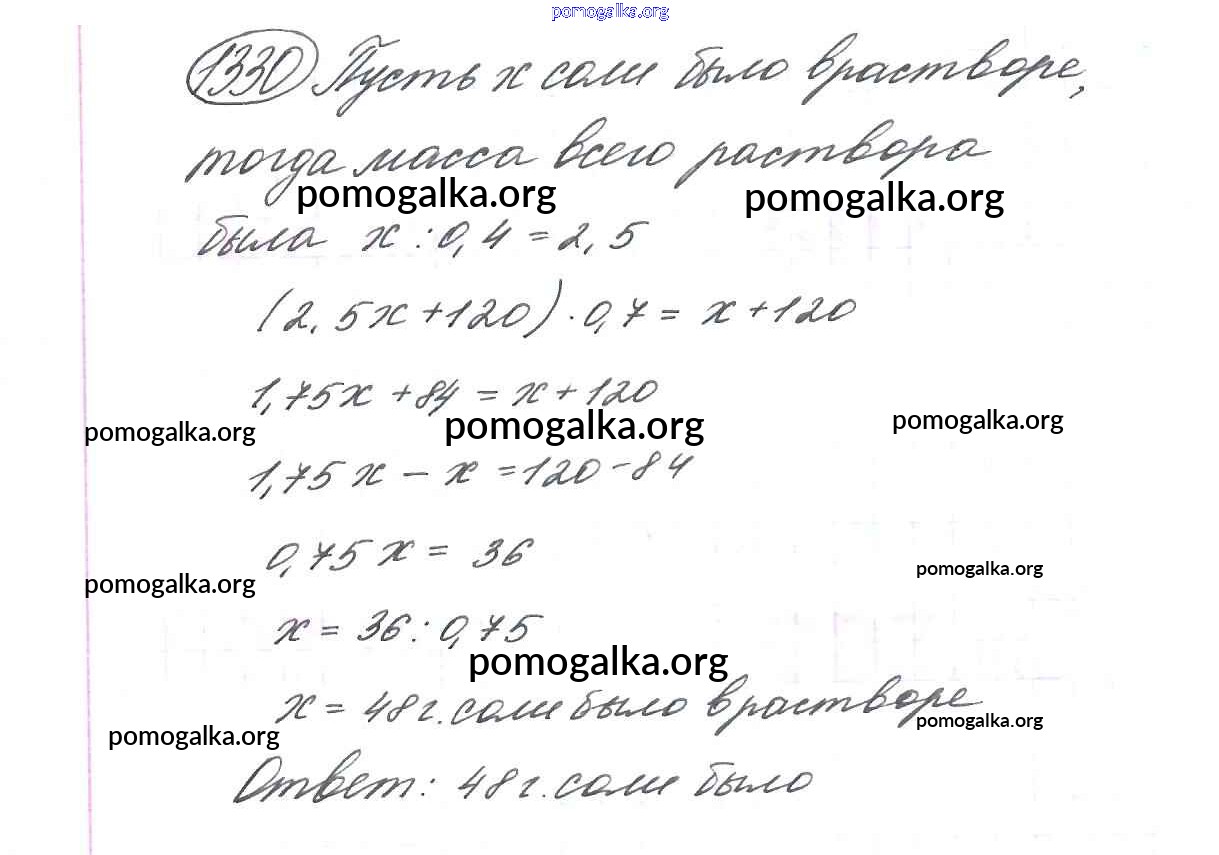 pomogalka.org
1330 Пусть х соли было в растворе,
тогда масса всего раствора
pomogalka.org pomogalka.org
была х : 0,4 = 2,5
(2,5х + 120) · 0,7 = х + 120
1,75х + 84 = х + 120
pomogalka.org pomogalka.org pomogalka.org
1,75х - х = 120 - 84
0,75х = 36
pomogalka.org pomogalka.org
х = 36 : 0,75
pomogalka.org
х = 48 г. соли было в растворе
pomogalka.org pomogalka.org
Ответ: 48 г. соли было